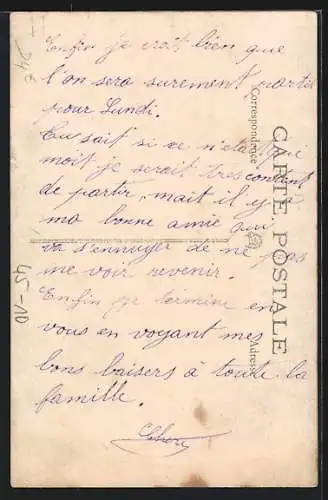 Enfin je croit bien que
l'on sera surement partis
pour Lundi.
Tu sait si ce n'était
moit je serait tres content
de partir, mait il y a
ma bonne amie qui
va s'ennuyer de ne pas
me voir revenir.
Enfin je termine en
vous en voyant mes
bons baisers à toute la
famille.
CARTE POSTALE
Correspondance
Adresse
45-10